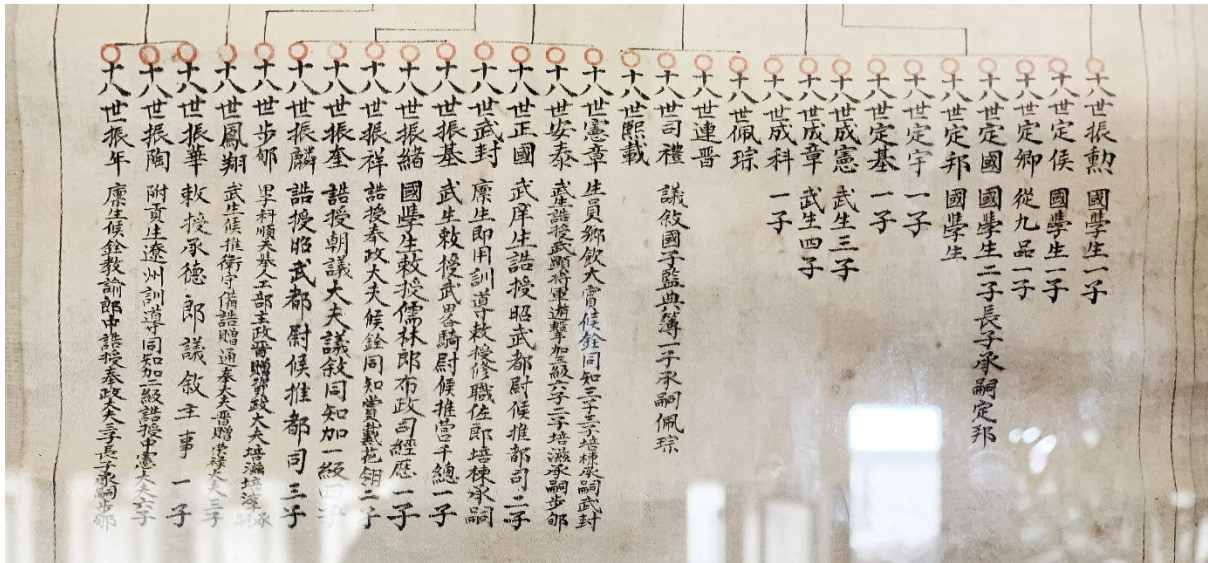 十八世振勲 國學生一子
十八世定侯 國學生一子
十八世定卿 從九品一子
十八世定國 國學生二子長子承嗣定邦
十八世定邦 國學生
十八世定宇 一子
十八世定基 一子
十八世成憲 武生三子
十八世成章 武生四子
十八世成科 一子
十八世佩琮
十八世連晋
十八世司禮 議敘國子監典簿一子承嗣佩琮
十八世熙載
十八世憲章 生員鄉飲大賓候銓同知三子三子培棟承嗣武封
十八世安泰 武生誥授武顯將軍遊擊加三級六子二子培滋承嗣步郇
十八世正國 武庠生誥授昭武都尉候推都司二子
十八世武封 廪生即用訓導敕授修職佐郎培棟承嗣
十八世振基 武生敕授武畧騎尉候推營千總一子
十八世振緒 國學生敕授儒林郎布政司經歷一子
十八世振祥 誥授奉政大夫候銓同知賞戴花翎二子
十八世振奎 誥授朝議大夫議敘同知加一級四子
十八世振麟 誥授昭武都尉候推都司三子
十八世步郇 甲子科順天舉人工部主政晋贈資政大夫培滋培深承嗣
十八世鳳翔 武生候推衛守備誥贈通奉大夫晋贈榮祿大夫二子
十八世振華 敕授承德郎議敘主事一子
十八世振陶 附貢生遼州訓導同知加二級誥授中憲大夫六子
十八世振年 廪生候銓教諭郎中誥授奉政大夫三子長子承嗣步郇